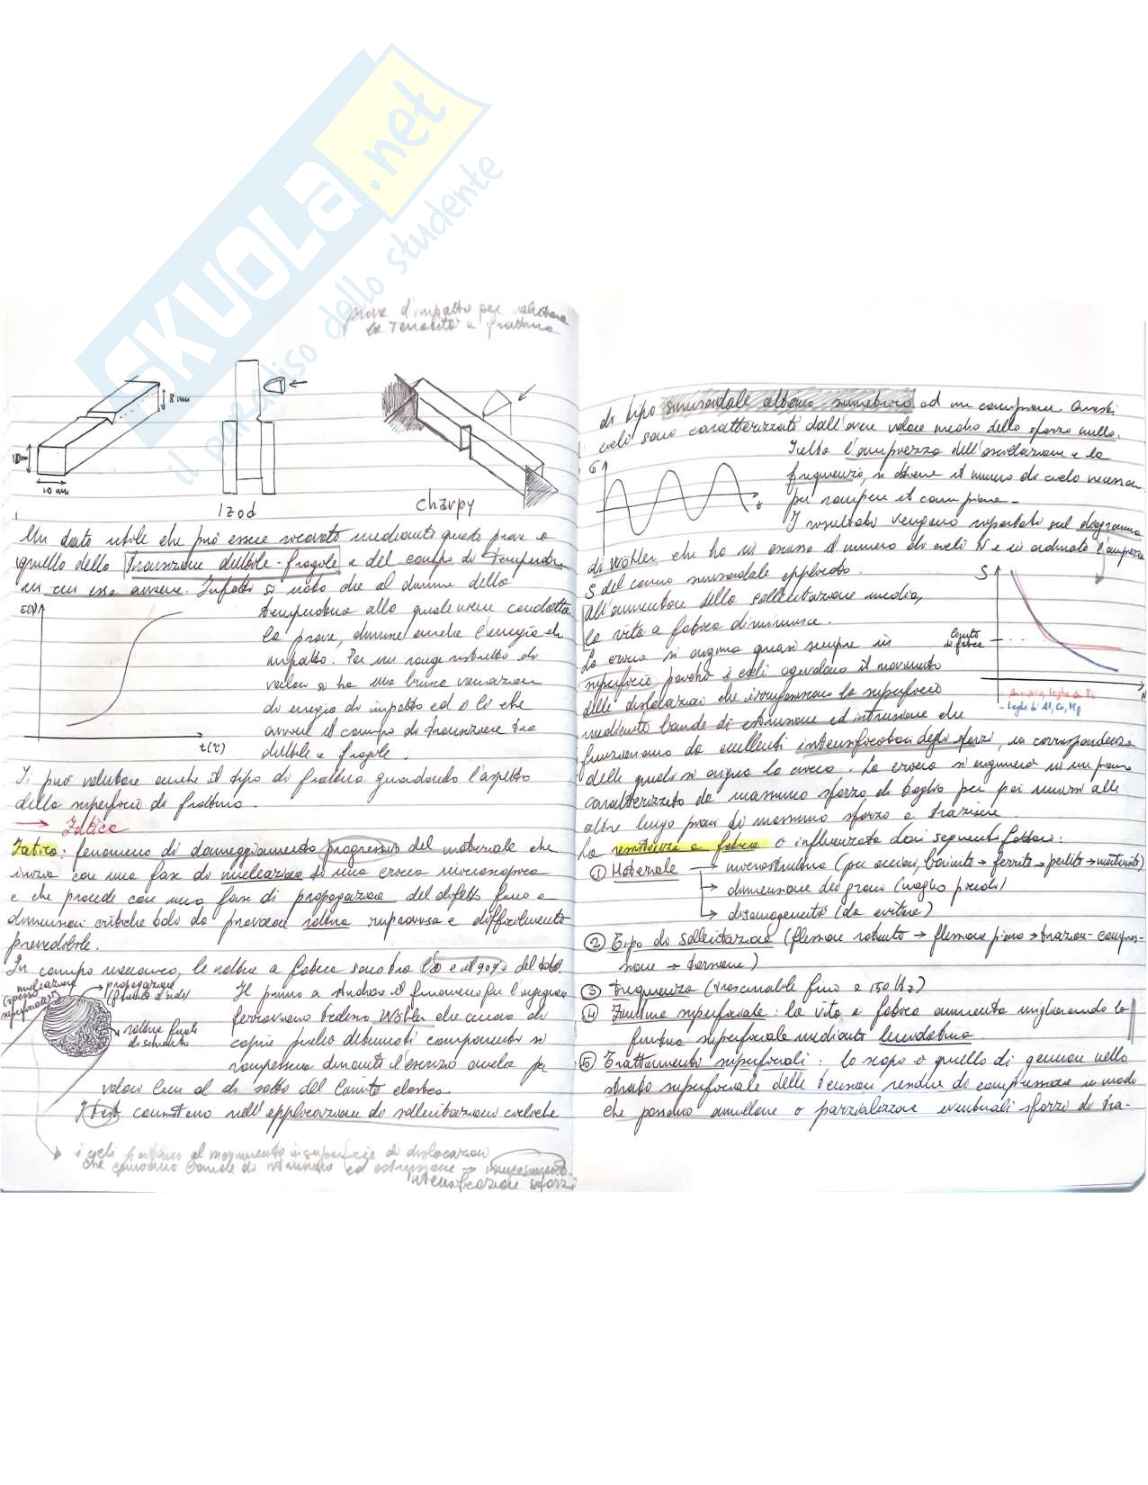 SKUOLA.net
il paradiso dello studente
prove d'impatto per valutare
la Tenacità a frattura
8 mm
10 mm
10 mm
Izod
Charpy
Un dato utile che può essere ricavato mediante queste prove è
quello della transizione duttile-fragile e del campo di temperatura
in cui essa avviene. Infatti si nota che al diminuire della
temperatura alla quale viene condotta
la prova, diminuisce anche l'energia di
impatto. Per un range ristretto di
valori si ha una brusca variazione
di energia di impatto ed è lì che
avviene il campo di transizione tra
duttile e fragile.
E(J)
t(°C)
Si può valutare anche il tipo di frattura guardando l'aspetto
della superficie di frattura.
→ Fatica
Fatica: fenomeno di danneggiamento progressivo del materiale che
inizia con una fase di nucleazione di una cricca microscopica
e che procede con una fase di propagazione del difetto fino a
dimensioni critiche tale da provocare rottura improvvisa e difficilmente
prevedibile.
In campo meccanico, le rotture a fatica sono tra l'80 e il 90% del totale.
nucleazione
(spesso
superficiale)
propagazione
rottura finale
di schianto
Il primo a studiare il fenomeno fu l'ingegnere
ferroviario tedesco Wöhler che cercava di
capire perché determinati componenti si
rompessero durante l'esercizio anche per
valori ben al di sotto del limite elastico.
I test consistono nell'applicazione di sollecitazioni cicliche
i cicli portano al movimento in superficie di dislocazioni
che causano bande di intrusione ed estrusione →
intensificazione sforzi
di tipo sinusoidale alterno simmetrico ad un campione. Questi
cicli sono caratterizzati dall'avere valore medio dello sforzo nullo.
σ
t
Scelta l'ampiezza dell'oscillazione e la
frequenza, si ottiene il numero di cicli necessari
per rompere il campione.
I risultati vengono riportati sul diagramma
di Wöhler che ha in ascissa il numero di cicli N e in ordinata l'ampiezza
S del carico sinusoidale applicato.
All'aumentare della sollecitazione media,
la vita a fatica diminuisce.
S
limite
di fatica
N
leghe di Ti
- leghe di Al, Cu, Mg
La cricca si origina quasi sempre in
superficie perché i cicli agevolano il movimento
delle dislocazioni che irregolarizzano la superficie
mediante bande di estrusione ed intrusione che
funzionano da eccellenti intensificatori degli sforzi, in corrispondenza
delle quali si origina la cricca. La cricca si originerà in un piano
caratterizzato da massimo sforzo di taglio per poi unirsi alle
altre lungo piani di massimo sforzo a trazione.
La resistenza a fatica è influenzata dai seguenti fattori:
① Materiale → microstruttura (per acciai, bainite → ferrite → perlite → martensite)
↳ dimensione dei grani (meglio piccoli)
↳ disomogeneità (da evitare)
② Tipo di sollecitazione (flessione rotante → flessione piana → trazione-compres-
sione → torsione)
③ Frequenza (trascurabile fino a 150 Hz)
④ Finitura superficiale: la vita a fatica aumenta migliorando la
finitura superficiale mediante lucidatura
⑤ Trattamenti superficiali: lo scopo è quello di generare nello
strato superficiale delle tensioni residue di compressione in modo
che possano annullare o parzializzare eventuali sforzi di tra-